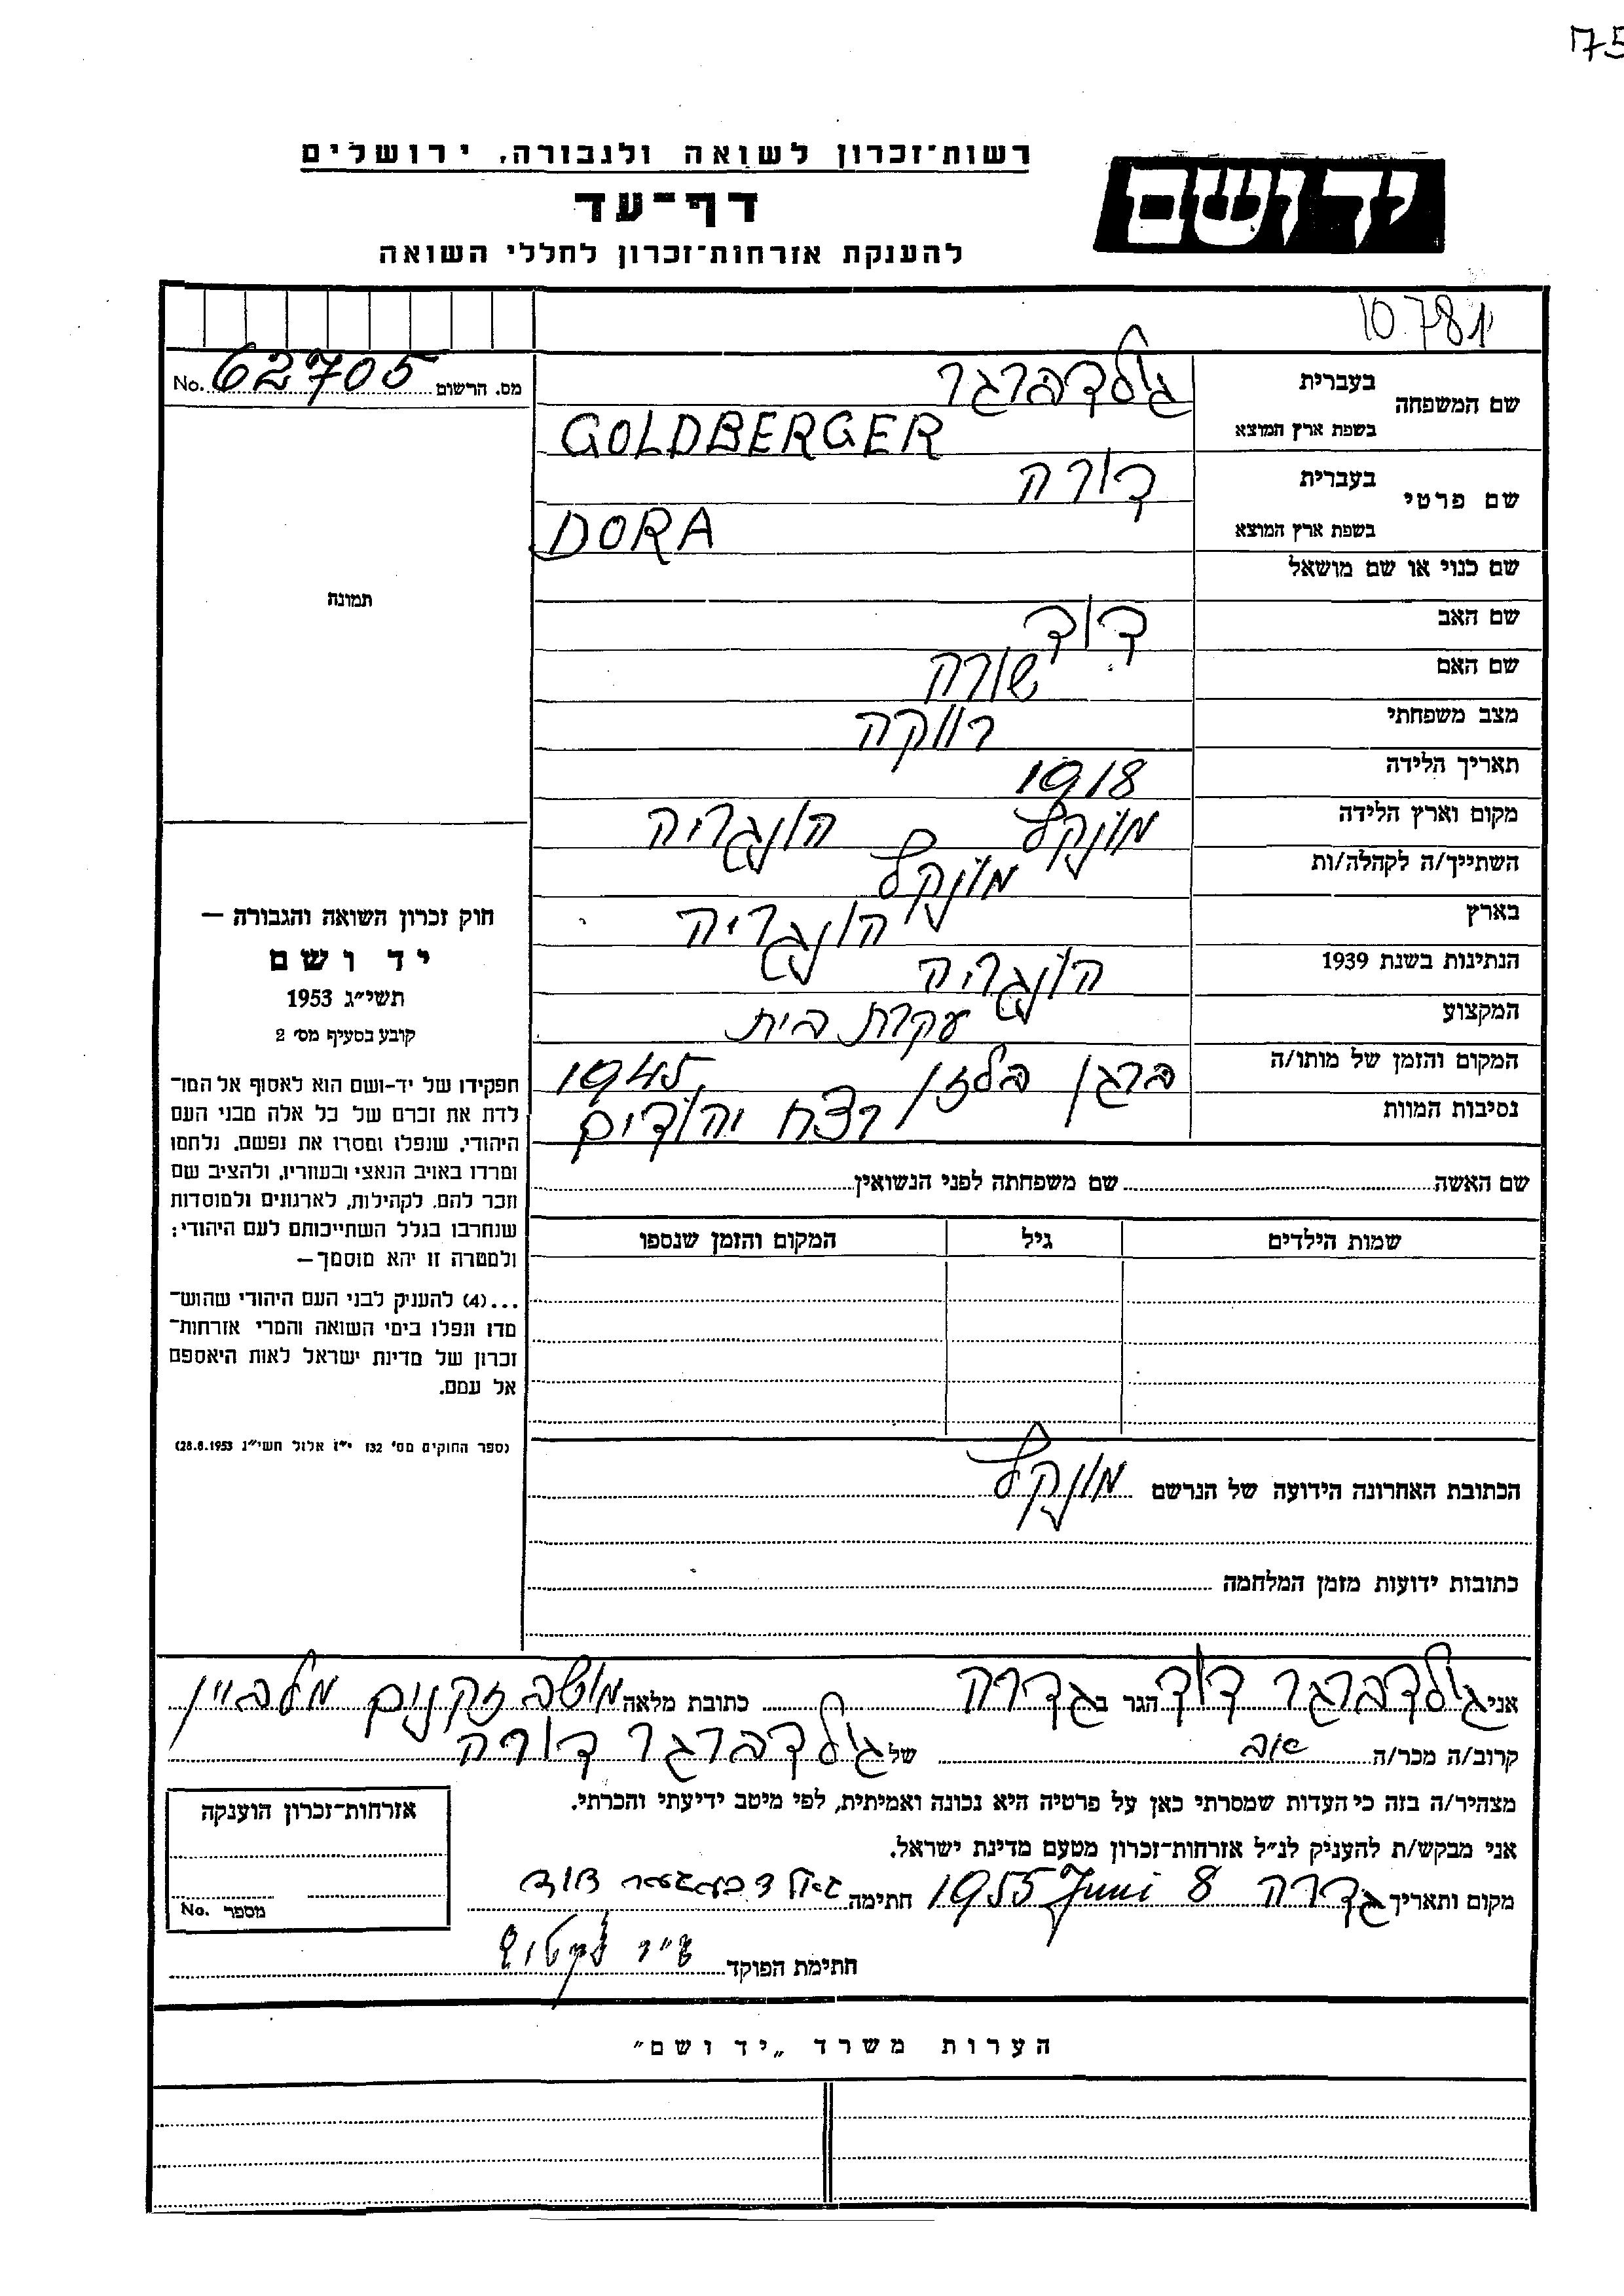 75
רשות־זכרון לשואה ולגבורה, ירושלים
יד ושם
דף־עד
להענקת אזרחות־זכרון לחללי השואה
10781
No. 62705 מס. הרשום
שם המשפחה בעברית גולדברגר
בשפת ארץ המוצא GOLDBERGER
שם פרטי בעברית דורה
בשפת ארץ המוצא DORA
שם כנוי או שם מושאל
תמונה
שם האב דוד
שם האם שורה
מצב משפחתי רווקה
תאריך הלידה 1918
מקום וארץ הלידה מונקץ הונגריה
השתייך/ה לקהלה/ות מונקץ
בארץ הונגריה
הנתינות בשנת 1939 הונגריה
המקצוע עקרת בית
המקום והזמן של מותו/ה ברגן בלזן 1945
נסיבות המוות רצח יהודים
חוק זכרון השואה והגבורה —
יד ושם
תשי״ג 1953
קובע בסעיף מס׳ 2
תפקידו של יד-ושם הוא לאסוף אל המו־
לדת את זכרם של כל אלה מבני העם
היהודי, שנפלו ומסרו את נפשם, נלחמו
ומרדו באויב הנאצי ובעוזריו, ולהציב שם
וזכר להם, לקהילות, לארגונים ולמוסדות
שנחרבו בגלל השתייכותם לעם היהודי;
ולמטרה זו יהא מוסמך—
...(4) להעניק לבני העם היהודי שהוש־
מדו ונפלו בימי השואה והמרי אזרחות־
זכרון של מדינת ישראל לאות היאספם
אל עמם.
(ספר החוקים מס׳ 132 י״ז אלול תשי״ג 28.8.1953)
שם האשה שם משפחתה לפני הנשואין
שמות הילדים גיל המקום והזמן שנספו
הכתובת האחרונה הידועה של הנרשם מונקץ
כתובות ידועות מזמן המלחמה
אני גולדברגר דוד הגר ב גדרה כתובת מלאה מושב זקנים מלבין
קרוב/ה מכר/ה אב של גולדברגר דורה
מצהיר/ה בזה כי העדות שמסרתי כאן על פרטיה היא נכונה ואמיתית, לפי מיטב ידיעתי והכרתי.
אני מבקש/ת להעניק לנ״ל אזרחות־זכרון מטעם מדינת ישראל.
מקום ותאריך גדרה 8 Juni 1955 חתימה גאלדבערגער דוד
אזרחות־זכרון הוענקה
No. מספר
חתימת הפוקד
הערות משרד „יד ושם״